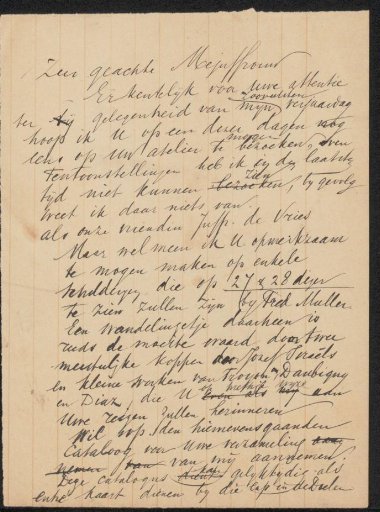 Zeer geachte Mejuffrouw
Erkentelijk voor uwe attentie
ter gelegenheid van mijn verjaardag
hoop ik U op een dezer dagen nog
eens op Uw atelier te bezoeken,
tentoonstellingen heb ik in de laatste
tijd niet kunnen zien, bij gevolg
weet ik daar niets van
als onze vrienden Juffr. de Vries
Maar wel meen ik U opmerkzaam
te mogen maken op enkele
schilderijen die op 27 & 28 dezer
te zien zullen zijn bij Fred Muller
Een wandelingetje daarheen is
reeds de moeite waard, door twee
meesterlijke koppen door Jozef Israels
en kleine werken van Troyon, Daubigny
en Diaz, die U aan
Uwe reizen zullen herinneren
Wil s.v.p. den hiernevensgaanden
Cataloog voor Uwe verzameling
van mij aannemen.
Deze catalogus gelijktijdig als
entre kaart dienen bij die